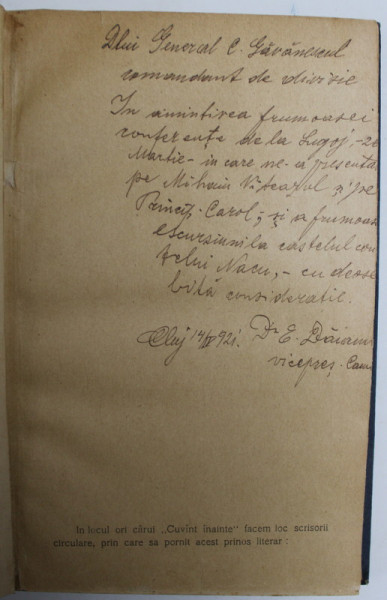 Dlui General C. Găvănescul
comandant de divizie
In amintirea frumoasei
conferențe de la Lugoj - 28
Martie - in care ne-a presentat
pe Mihaiu Viteazul și pe
Princip. Carol; și a frumoas
escursiuni la castelul con
telui Nacu, - cu deose
bită considerație.
Cluj 14/IV 921. Dr E. Dăianu
vicepreș. Cam
In locul ori cărui „Cuvînt înainte" facem loc scrisorii
circulare, prin care sa pornit acest prinos literar :